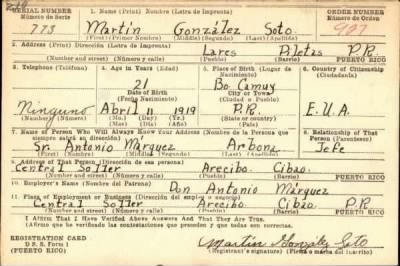 SERIAL NUMBER 1. Name (Print) Nombre (Letra de Imprenta) ORDER NUMBER
Número de Serie Número de Orden
773 Martín González Soto 927
(First) (Primer Nombre) (Middle) (Segundo Nombre) (Last) (Apellido)
2. Address (Print) Dirección (Letra de Imprenta)
Lares Piletas P.R.
(Number and street) (Número y calle) (Town) (Pueblo) (Barrio) PUERTO RICO
3. Telephone (Teléfono) 4. Age in Years (Edad) 5. Place of Birth (Lugar de Nacimiento) 6. Country of Citizenship (Ciudadanía)
21 Bo. Camuy
Date of Birth (Fecha Nacimiento) City or Town (Ciudad o Pueblo)
Ninguno Abril 11 1919 P.R. E.U.A.
Number (Número) (Mo.) (Mes) (Day) (Día) (Yr.) (Año) (State or country)
7. Name of Person Who Will Always Know Your Address (Nombre de la Persona que siempre sabrá su dirección) 8. Relationship of That Person (Parentesco)
Sr. Antonio Márquez Arbona Jefe
(First) (Middle) (Last) (Apellido)
9. Address of That Person (Dirección de esa persona)
Central Soller Arecibo Cibao
(Number and street) (Número y calle) (Town) (Pueblo) (Barrio) PUERTO RICO
10. Employer's Name (Nombre del Patrono)
Don Antonio Márquez
11. Place of Employment or Business (Dirección del empleo o negocio)
Central Soller Arecibo Cibao P.R
(Number and street) (Número y calle) (Town) (Pueblo) (Barrio) PUERTO RICO
I Affirm That I Have Verified Above Answers And That They Are True.
(Afirmo que he verificado las contestaciones que preceden y que todas son correctas.
REGISTRATION CARD
D. S. S. Form 1 Martin González Soto
(Registrant's signature) (Firma o marca del Inscrito)